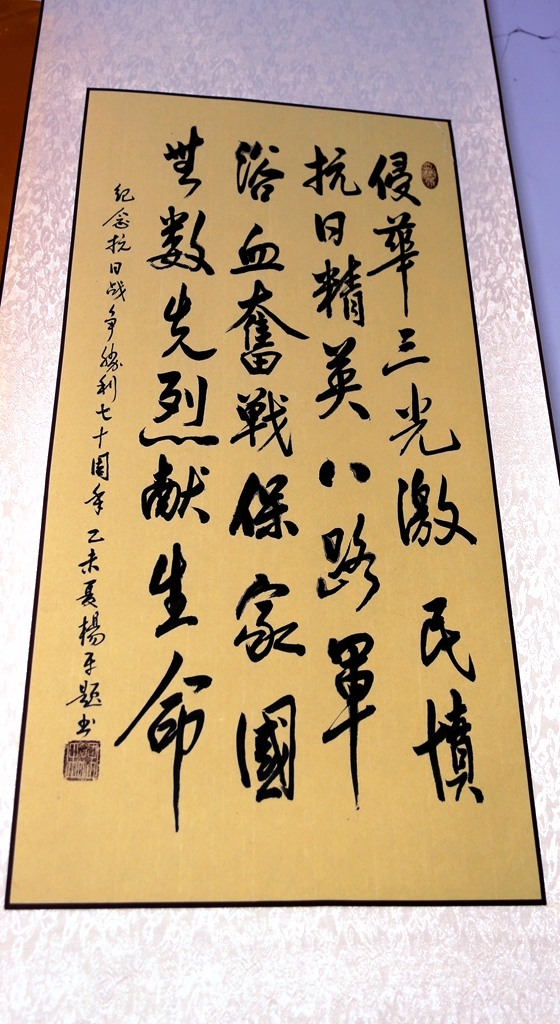 侵華三光激民憤
抗日精英八路軍
浴血奮戰保家國
無數先烈献生命
紀念抗日战争勝利七十周年 乙未夏楊平題书